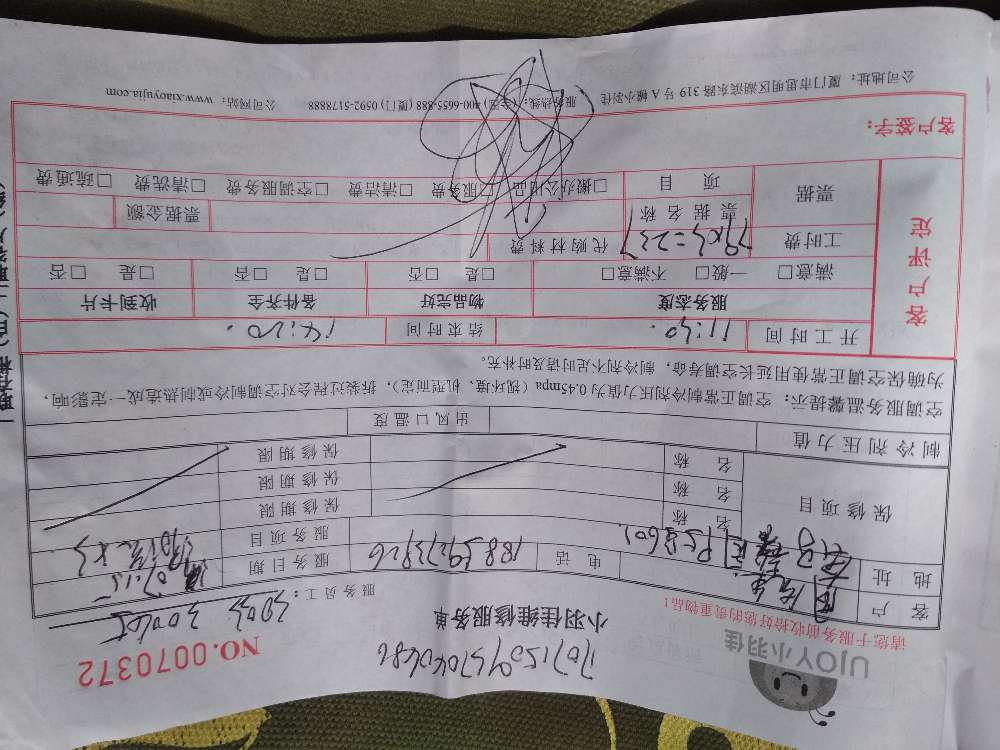 UJOY小羽佳
请您于服务前收拾好您的贵重物品！
小羽佳维修服务单
NO.0070372
服务员工：
客户
地址
电话
服务日期
保修项目
名称
名称
名称
服务项目
保修期限
保修期限
保修期限
制冷剂压力值
出风口温度
空调服务温馨提示：空调正常制冷剂压力值为0.45mpa（视环境、机型而定），拆装过程会对空调制冷或制热造成一定影响，
为确保空调正常使用延长空调寿命，制冷剂不足时请及时补充。
客户评定
开工时间 11:40.
结束时间 14:20.
服务态度 物品完好 备件齐全 收到卡片
满意□ 一般□ 不满意□ □是 □否 □是 □否 □是 □否
工时费 79x3=237 代购材料费
票据
票据名称
票据金额
项目
□搬办公用品 □服务费 □清洁费 □空调服务费 □清洗费 □疏通费
客户签字：
公司地址：厦门市思明区湖滨东路319号A幢小羽佳 服务热线：(全国) 400-6655-888 (厦门) 0592-5178888 公司网站：www.xiaoyujia.com